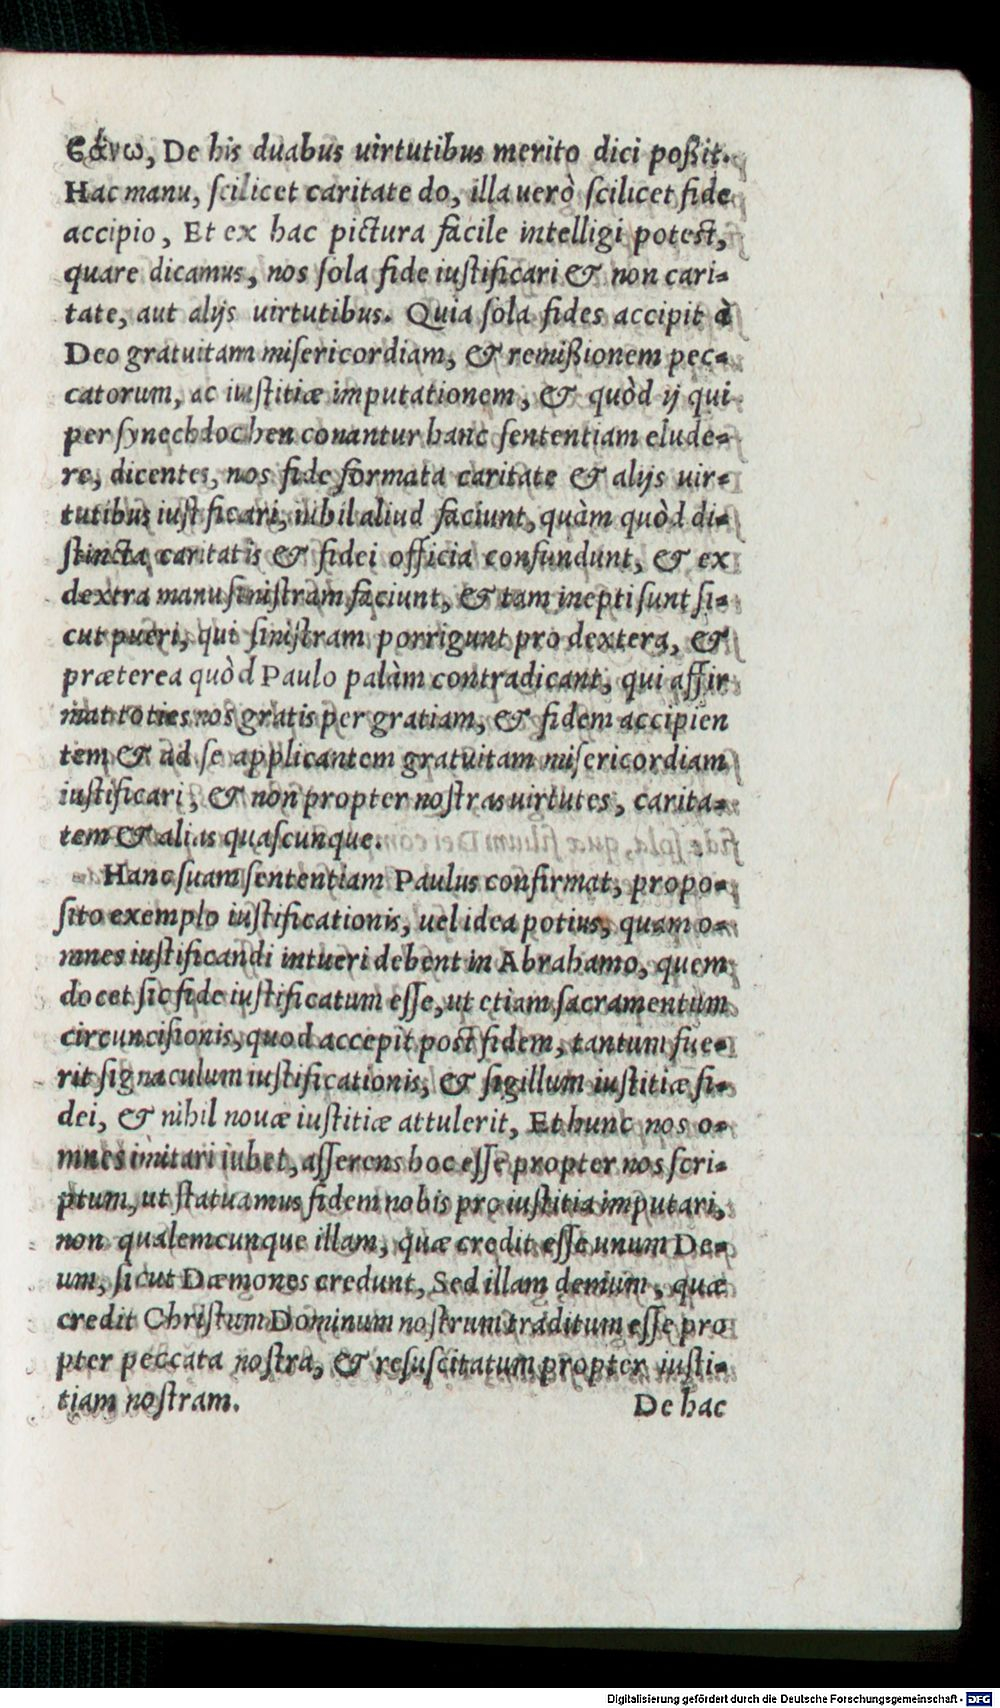 βάνω, De his duabus uirtutibus merito dici poßit.
Hac manu, ſcilicet caritate do, illa uerò ſcilicet fide
accipio, Et ex hac pictura facile intelligi poteſt,
quare dicamus, nos ſola fide iuſtificari & non cari-
tate, aut alijs uirtutibus. Quia ſola fides accipit à
Deo gratuitam miſericordiam, & remißionem pec-
catorum, ac iuſtitiæ imputationem, & quòd ij qui
per ſynechdochen conantur hanc ſententiam elude-
re, dicentes, nos fide formata caritate & alijs uir-
tutibus iuſtificari, nihil aliud faciunt, quàm quòd di-
ſtincta caritatis & fidei officia confundunt, & ex
dextra manu ſiniſtram faciunt, & tam inepti ſunt ſi-
cut pueri, qui ſiniſtram porrigunt pro dextera, &
præterea quòd Paulo palàm contradicant, qui affir
mat toties nos gratis per gratiam, & fidem accipien
tem & ad ſe applicantem gratuitam miſericordiam
iuſtificari, & non propter noſtras uirtutes, carita-
tem & alias quaſcunque.
Hanc ſuam ſententiam Paulus confirmat, propo-
ſito exemplo iuſtificationis, uel idea potius, quam o-
mnes iuſtificandi intueri debent in Abrahamo, quem
docet ſic fide iuſtificatum eſſe, ut etiam ſacramentum
circunciſionis, quod accepit poſt fidem, tantum fue-
rit ſignaculum iuſtificationis, & ſigillum iuſtitiæ fi-
dei, & nihil nouæ iuſtitiæ attulerit, Et hunc nos o-
mnes imitari iubet, aſſerens hoc eſſe propter nos ſcri-
ptum, ut ſtatuamus fidem nobis pro iuſtitia imputari,
non qualemcunque illam, quæ credit eſſe unum De-
um, ſicut Dæmones credunt, Sed illam demum, quæ
credit Chriſtum Dominum noſtrum traditum eſſe pro
pter peccata noſtra, & reſuſcitatum propter iuſti-
tiam noſtram. De hac
Digitalisierung gefördert durch die Deutsche Forschungsgemeinschaft - DFG